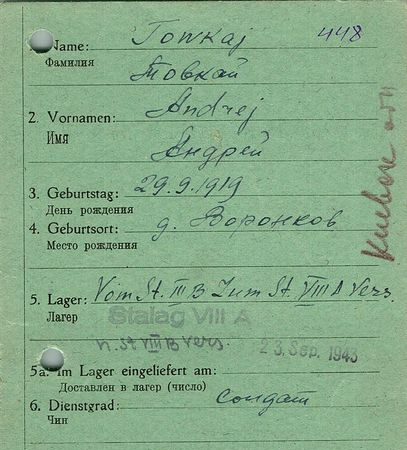 1. Name: Towkaj 448
Фамилия
Товкай
2. Vornamen: Andrej
Имя
Андрей
3. Geburtstag: 29.9.1919
День рождения
4. Geburtsort: д. Воронков
Место рождения
Киевск обл
5. Lager: Vom St. III B Zum St. VIII A Vers.
Лагер
Stalag VIII A
n. St VIII B Vers. 23. Sep. 1943
5a. Im Lager eingeliefert am:
Доставлен в лагер (число)
6. Dienstgrad: солдат
Чин